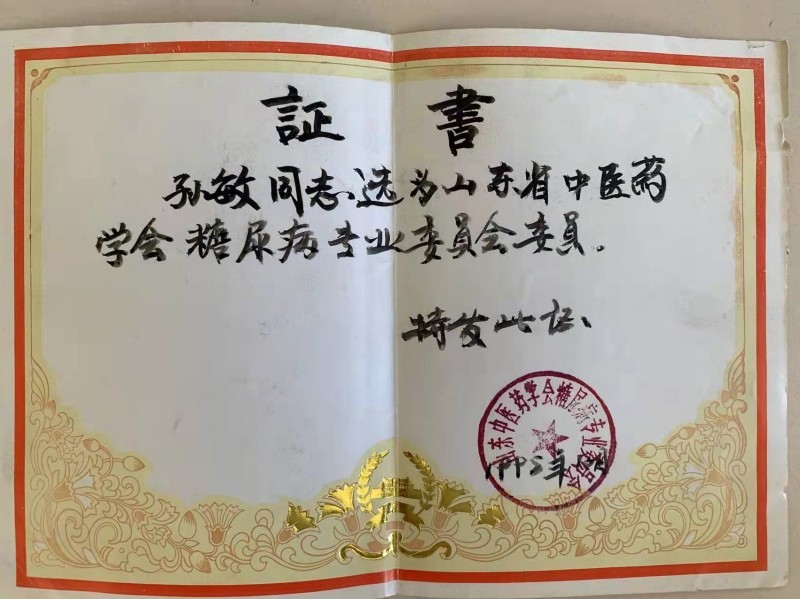 証書
孙敏同志选为山东省中医药
学会糖尿病专业委员会委员。
特发此证、
山东中医药学会糖尿病专业委员会
1995年